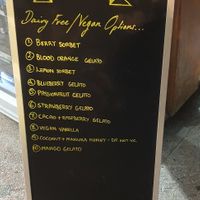 Dairy Free/Vegan Options...
1 BERRY SORBET
2 BLOOD ORANGE GELATO
3 LEMON SORBET
4 BLUEBERRY GELATO
5 PASSIONFRUIT GELATO
6 STRAWBERRY GELATO
7 CACAO + RASPBERRY GELATO
8 VEGAN VANILLA
9 COCONUT + MANUKA HONEY - DF NOT VG.
10 MANGO GELATO